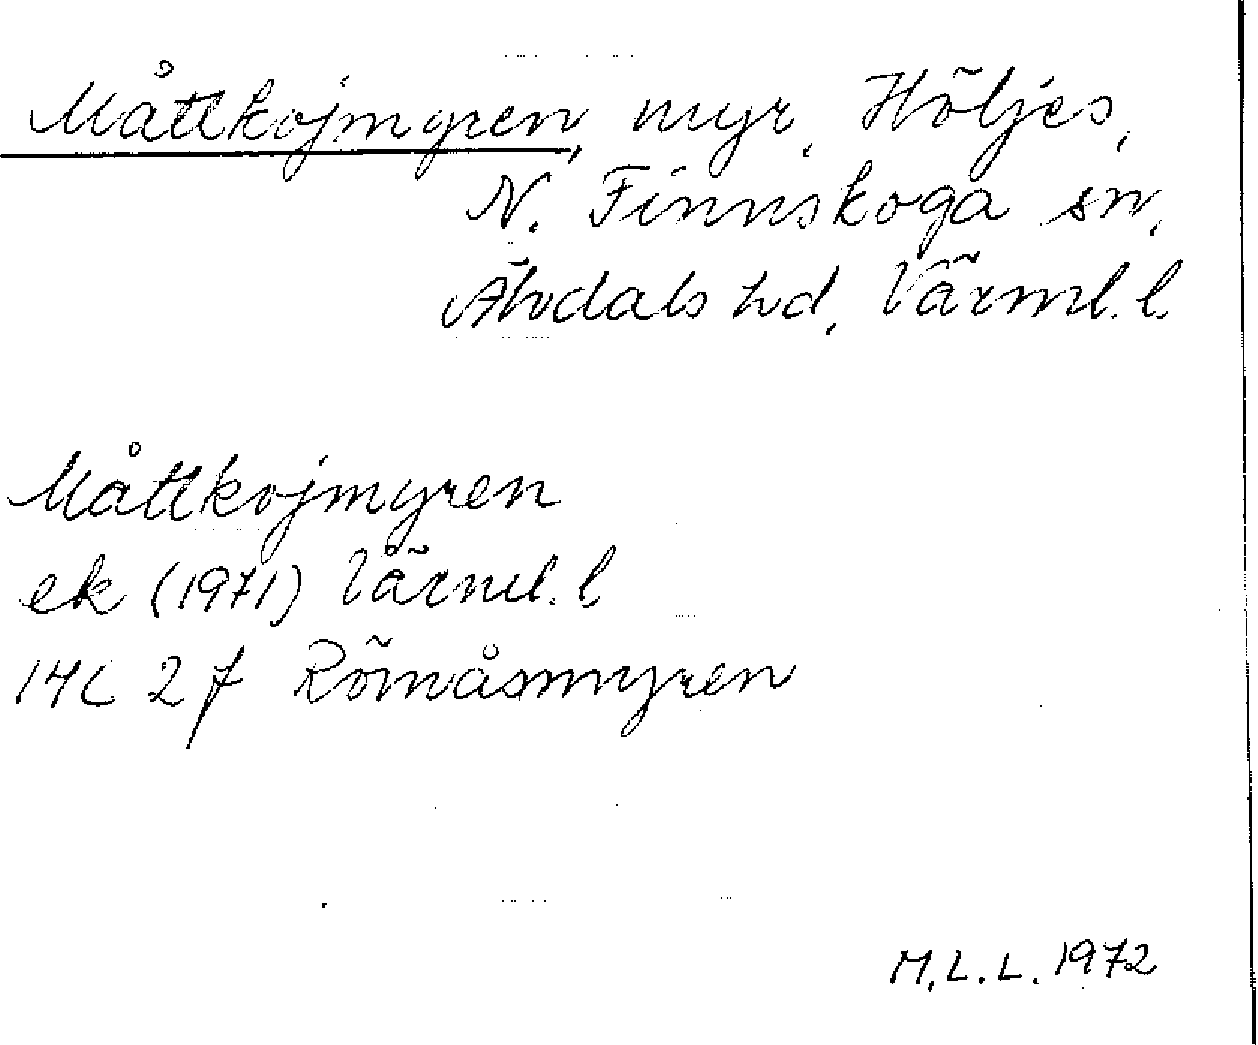 Måttkojmyren, myr, Höljes,
N. Finnskoga sn,
Älvdals hd, Värml. l.
Måttkojmyren
ek (1971) Värml. l
14C 2f Römåsmyren
M.L.L. 1972